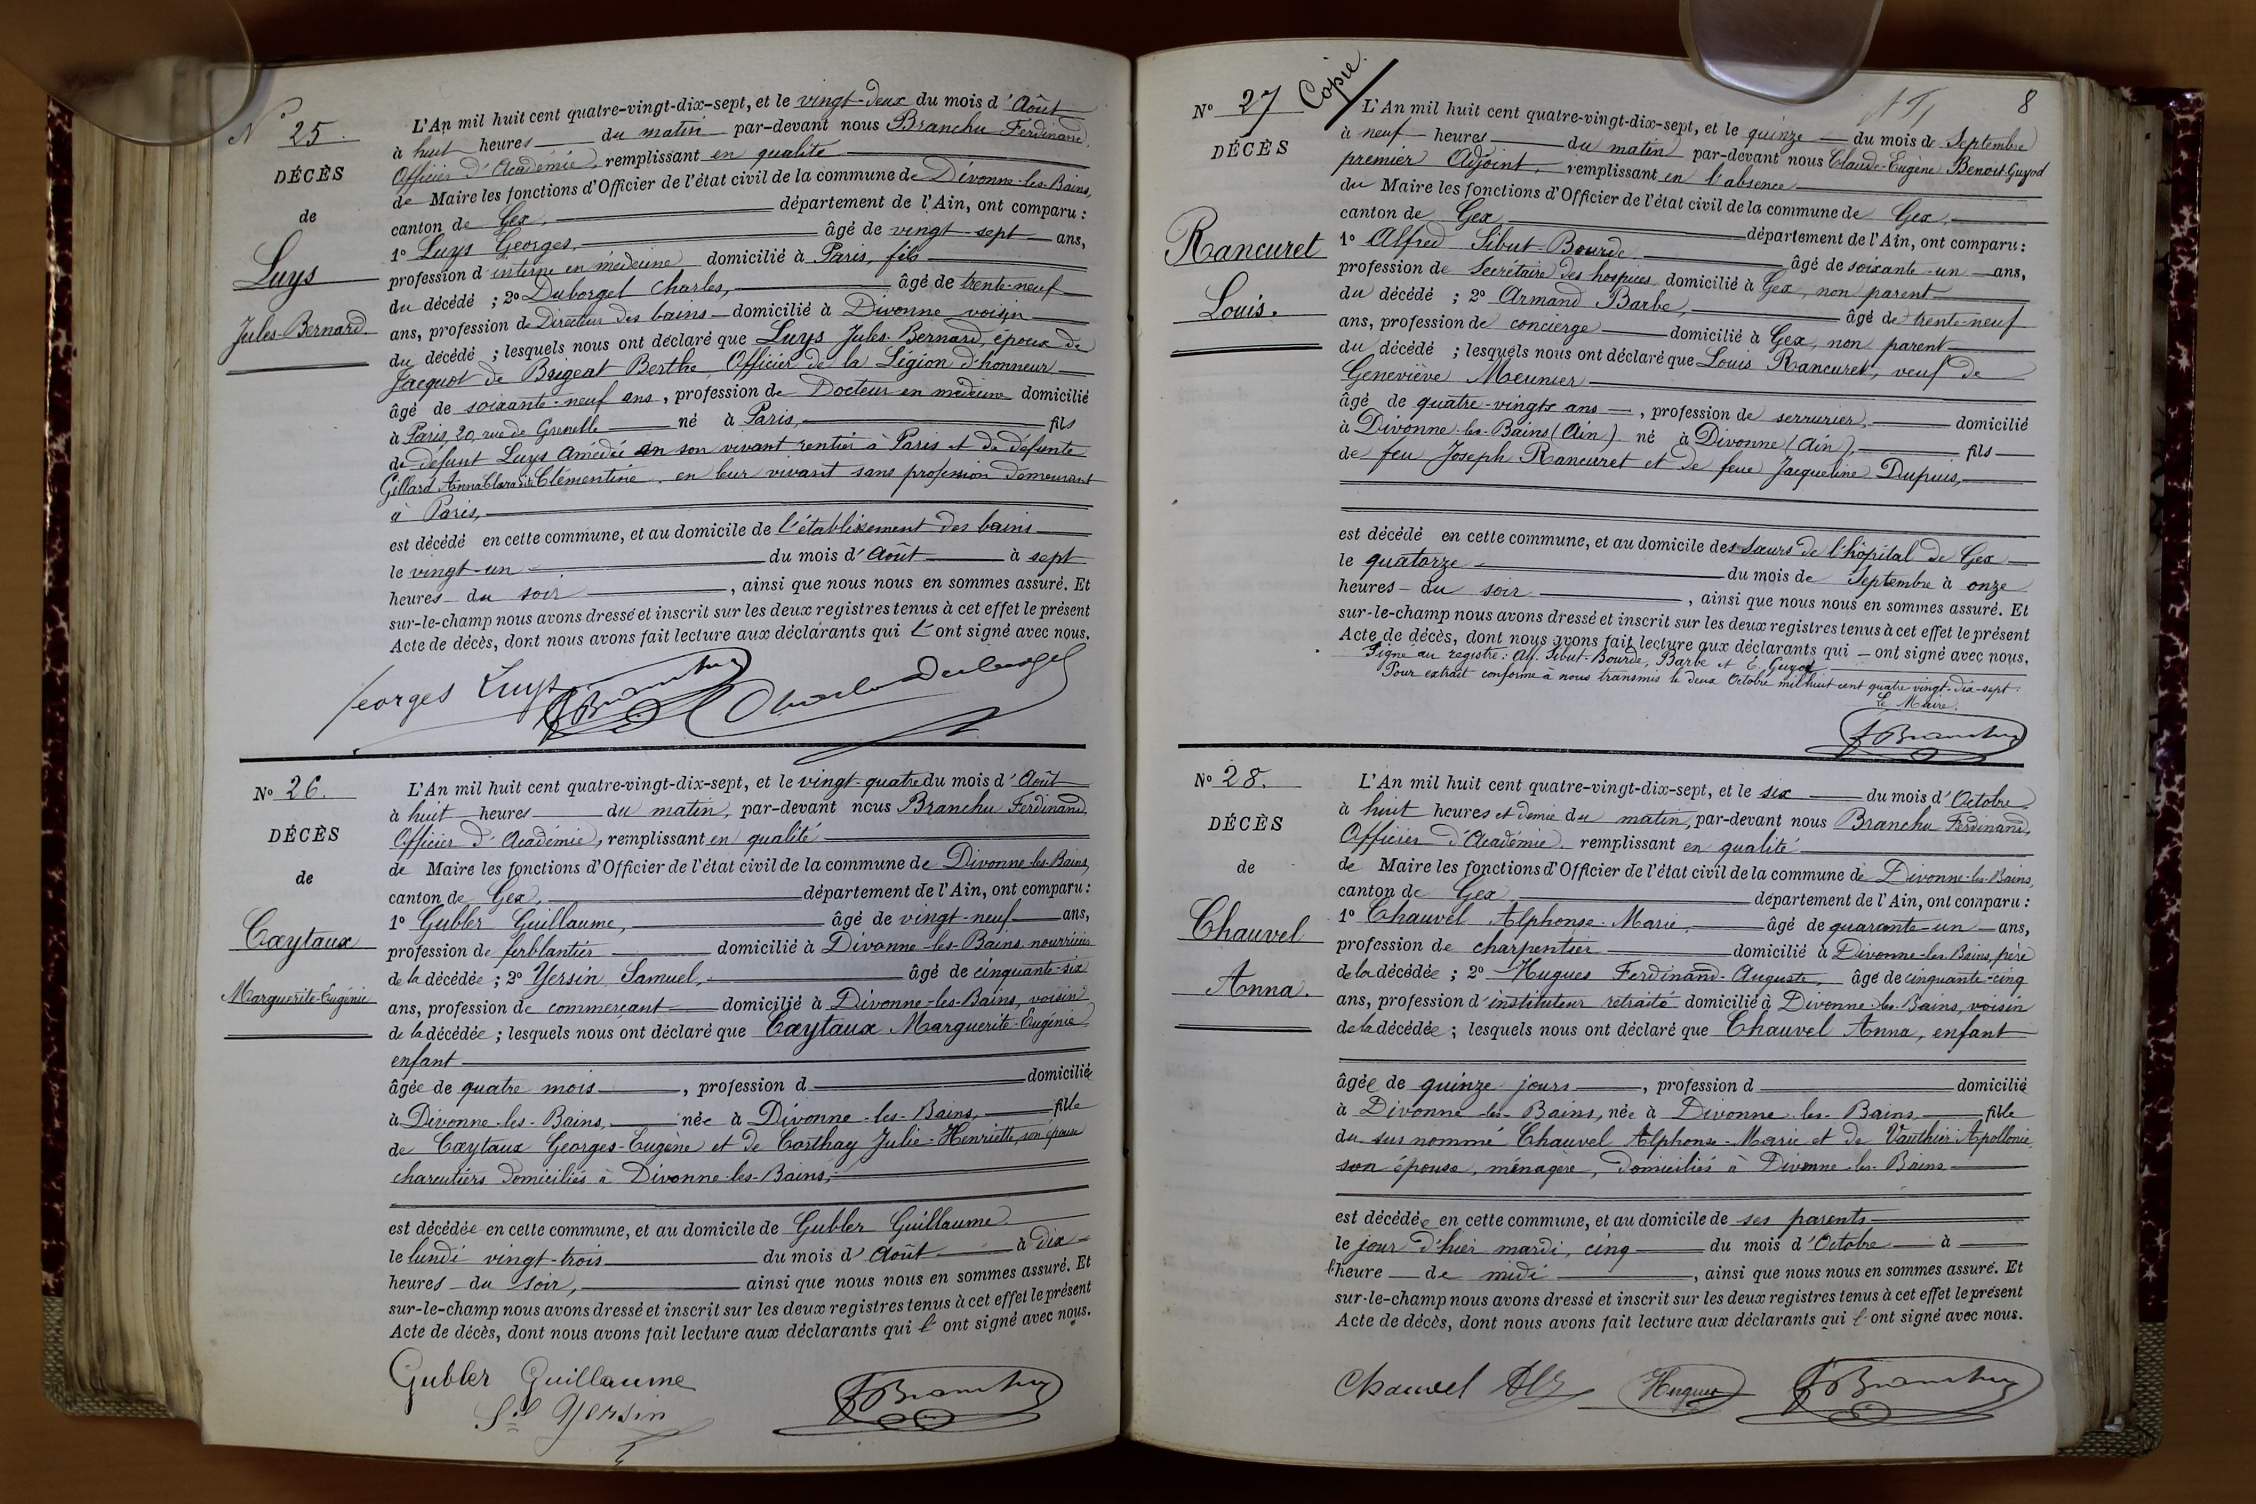 N° 25.
DÉCÈS
de
Luys
Jules-Bernard.
L'An mil huit cent quatre-vingt-dix-sept, et le vingt-deux du mois d'Août
à huit heures du matin par-devant nous Branchu Ferdinand,
Officier d'Académie, remplissant en qualité
de Maire les fonctions d'Officier de l'état civil de la commune de Divonne-les-Bains,
canton de Gex, département de l'Ain, ont comparu :
1° Luys Georges, âgé de vingt-sept ans,
profession d'interne en médecine domicilié à Paris, fils
du décédé ; 2° Duborgel Charles, âgé de trente-neuf
ans, profession de Directeur des bains domicilié à Divonne voisin
du décédé ; lesquels nous ont déclaré que Luys Jules-Bernard, époux de
Jacquot de Brigeat Berthe, Officier de la Légion d'honneur
âgé de soixante-neuf ans, profession de Docteur en médecine domicilié
à Paris, 20, rue de Grenelle né à Paris, fils
de défunt Luys Amédée en son vivant rentier à Paris et de défunte
Gillard Anna Clara dite Clémentine, en leur vivant sans profession demeurant
à Paris,
est décédé en cette commune, et au domicile de l'établissement des bains
le vingt-un du mois d'Août à sept
heures du soir, ainsi que nous nous en sommes assuré. Et
sur-le-champ nous avons dressé et inscrit sur les deux registres tenus à cet effet le présent
Acte de décès, dont nous avons fait lecture aux déclarants qui l'ont signé avec nous.
Georges Luys FBranchu Charles Duborgel
N° 26.
DÉCÈS
de
Caytaux
Marguerite-Eugénie
L'An mil huit cent quatre-vingt-dix-sept, et le vingt-quatre du mois d'Août
à huit heures du matin, par-devant nous Branchu Ferdinand,
Officier d'Académie, remplissant en qualité
de Maire les fonctions d'Officier de l'état civil de la commune de Divonne-les-Bains,
canton de Gex, département de l'Ain, ont comparu :
1° Gubler Guillaume, âgé de vingt-neuf ans,
profession de ferblantier domicilié à Divonne-les-Bains, nourricier
de la décédée ; 2° Yersin Samuel, âgé de cinquante-six
ans, profession de commerçant domicilié à Divonne-les-Bains, voisin
de la décédée ; lesquels nous ont déclaré que Caytaux Marguerite-Eugénie
enfant
âgée de quatre mois, profession d domicilié
à Divonne-les-Bains, née à Divonne-les-Bains, fille
de Caytaux Georges-Eugène et de Corthay Julie-Henriette, son épouse
charcutiers domiciliés à Divonne-les-Bains,
est décédée en cette commune, et au domicile de Gubler Guillaume
le lundi vingt-trois du mois d'Août à dix
heures du soir, ainsi que nous nous en sommes assuré. Et
sur-le-champ nous avons dressé et inscrit sur les deux registres tenus à cet effet le présent
Acte de décès, dont nous avons fait lecture aux déclarants qui l'ont signé avec nous.
Gubler Guillaume
Sel Yersin FBranchu
8
N° 27 Copie.
DÉCÈS
Rancuret
Louis.
L'An mil huit cent quatre-vingt-dix-sept, et le quinze du mois de Septembre
à neuf heures du matin par-devant nous Claude-Eugène Benoit-Guyod
premier Adjoint, remplissant en l'absence
du Maire les fonctions d'Officier de l'état civil de la commune de Gex,
canton de Gex département de l'Ain, ont comparu :
1° Alfred Sibut-Bourde âgé de soixante-un ans,
profession de Secrétaire des hospices domicilié à Gex, non parent
du décédé ; 2° Armand Barbe, âgé de trente-neuf
ans, profession de concierge domicilié à Gex, non parent
du décédé ; lesquels nous ont déclaré que Louis Rancuret, veuf de
Geneviève Meunier
âgé de quatre-vingts ans, profession de serrurier, domicilié
à Divonne-les-Bains (Ain) né à Divonne (Ain), fils
de feu Joseph Rancuret et de feue Jacqueline Dupuis,
est décédé en cette commune, et au domicile des sœurs de l'hôpital de Gex
le quatorze du mois de Septembre à onze
heures du soir, ainsi que nous nous en sommes assuré. Et
sur-le-champ nous avons dressé et inscrit sur les deux registres tenus à cet effet le présent
Acte de décès, dont nous avons fait lecture aux déclarants qui ont signé avec nous.
Signé au registre : Alf. Sibut-Bourde, Barbe et E. Guyod
Pour extrait conforme à nous transmis le deux Octobre mil huit cent quatre vingt-dix-sept.
Le Maire.
FBranchu
N° 28.
DÉCÈS
de
Chauvel
Anna.
L'An mil huit cent quatre-vingt-dix-sept, et le six du mois d'Octobre
à huit heures et demie du matin, par-devant nous Branchu Ferdinand,
Officier d'Académie remplissant en qualité
de Maire les fonctions d'Officier de l'état civil de la commune de Divonne-les-Bains,
canton de Gex département de l'Ain, ont comparu :
1° Chauvel Alphonse-Marie, âgé de quarante-un ans,
profession de charpentier domicilié à Divonne-les-Bains, père
de la décédée ; 2° Hugues Ferdinand-Auguste, âgé de cinquante-cinq
ans, profession d'instituteur retraité domicilié à Divonne-les-Bains, voisin
de la décédée ; lesquels nous ont déclaré que Chauvel Anna, enfant
âgée de quinze jours, profession d domicilié
à Divonne-les-Bains, née à Divonne-les-Bains fille
du sus nommé Chauvel Alphonse-Marie et de Vauthier Apollonie
son épouse, ménagère, domiciliés à Divonne-les-Bains
est décédée en cette commune, et au domicile de ses parents
le jour d'hier mardi, cinq du mois d'Octobre à
l'heure de midi, ainsi que nous nous en sommes assuré. Et
sur-le-champ nous avons dressé et inscrit sur les deux registres tenus à cet effet le présent
Acte de décès, dont nous avons fait lecture aux déclarants qui l'ont signé avec nous.
Chauvel Hugues FBranchu